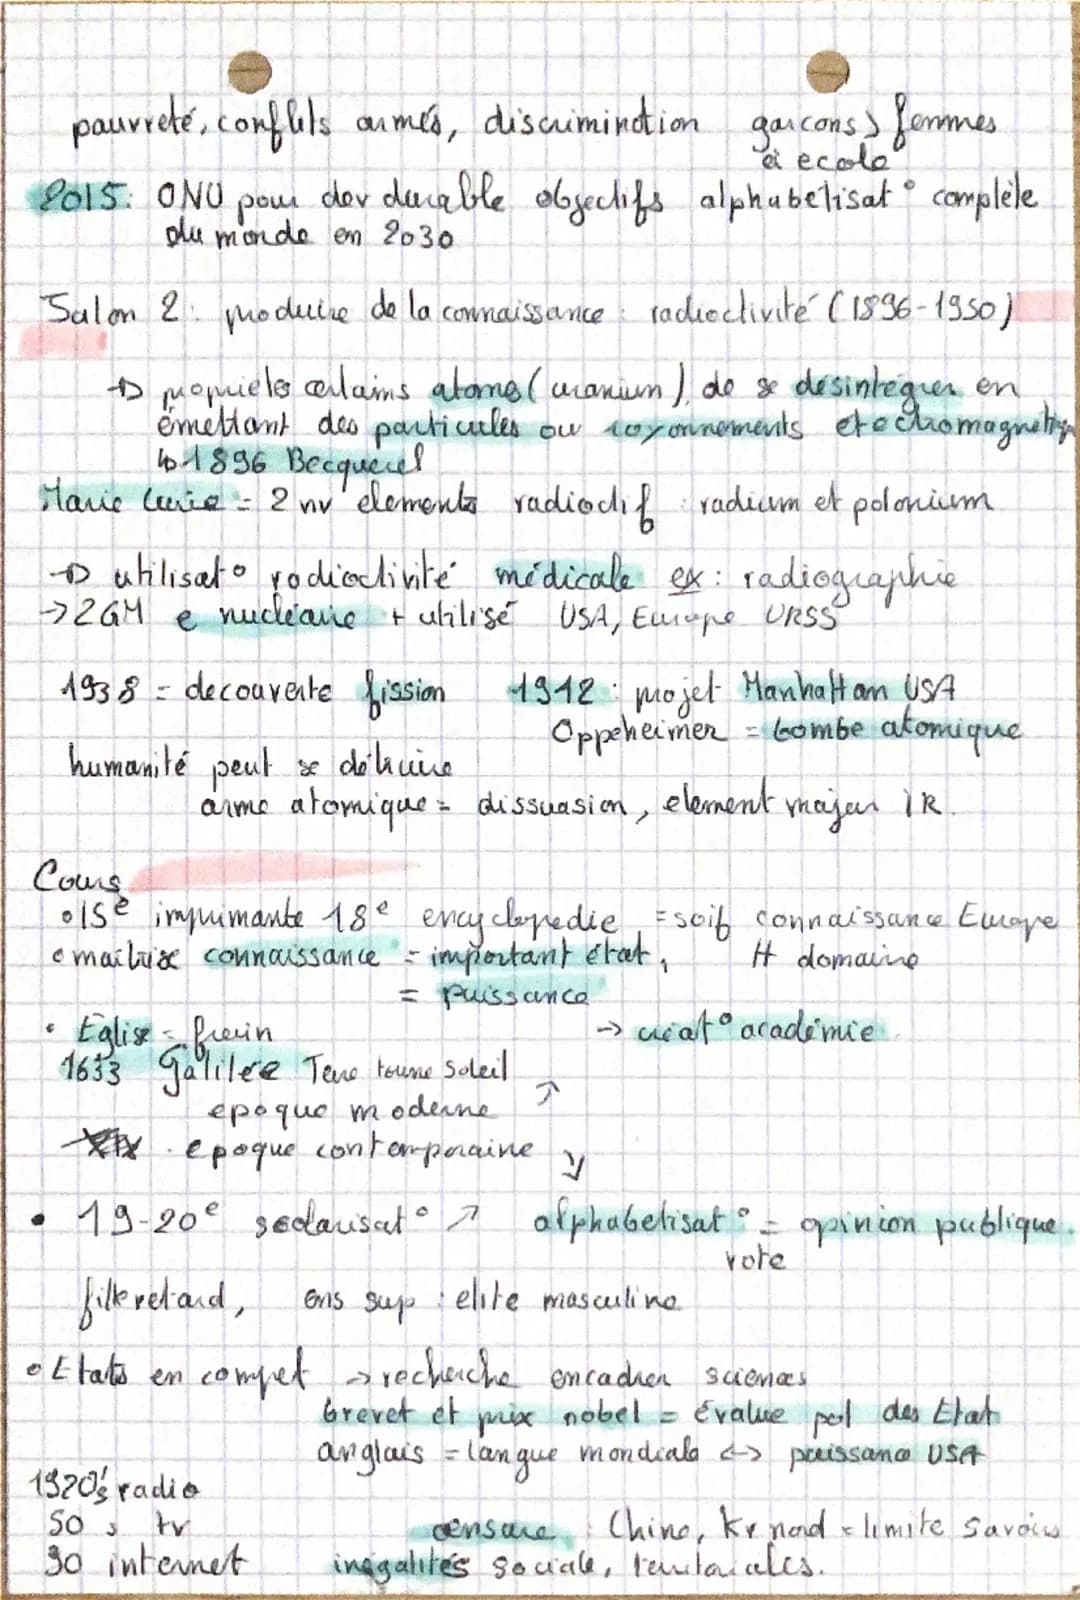 pauvreté, conflits armés, discrimination garcons > femmes
à ecole
2015: ONU pour dev durable objectifs alphabetisat° complète
du monde en 2030
Salon 2 : produire de la connaissance : radioctivité (1896-1950)
→ propriétés certains atomes (uranium), de se désintégrer en
émettant des particules ou rayonnements electromagnétiq
↳ 1896 Becquerel
Marie Curie = 2 nv elements radioctif : radium et polonium
→ utilisat° radioctivité médicale ex : radiographie
→ 2GM e nucléaire + utilisé USA, Europe URSS
1938 = decouverte fission 1942 : projet Manhattan USA
Oppeheimer = bombe atomique
humanité peut se détruire
arme atomique = dissuasion, element majeur IR.
Cours
• 15e imprimante 18e encyclopedie = soif connaissance Europe
• maitrise connaissance = important état, # domaine
= puissance
• Eglise = frein → creat° académie
1633 Galilée Terre tourne Soleil
epoque moderne ↗
epoque contemporaine ↘
• 19-20e scolarisat° ↗ alphabetisat° = opinion publique.
vote
fille retard, ens sup : elite masculine
• Etats en compet → recherche encadrer sciences
brevet et prix nobel = évalue pol des Etat
anglais = langue mondiale ↔ puissance USA
1920's radio
50 s tv censure : Chine, Kr nord = limite savoirs
90 internet inégalités sociale, territoriales.